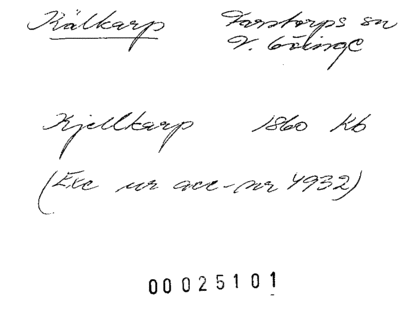 Kälkarp Farstorps sn
V. Göinge
Kjellkarp 1860 Kb
(Exc ur acc-nr 4932)
00025101